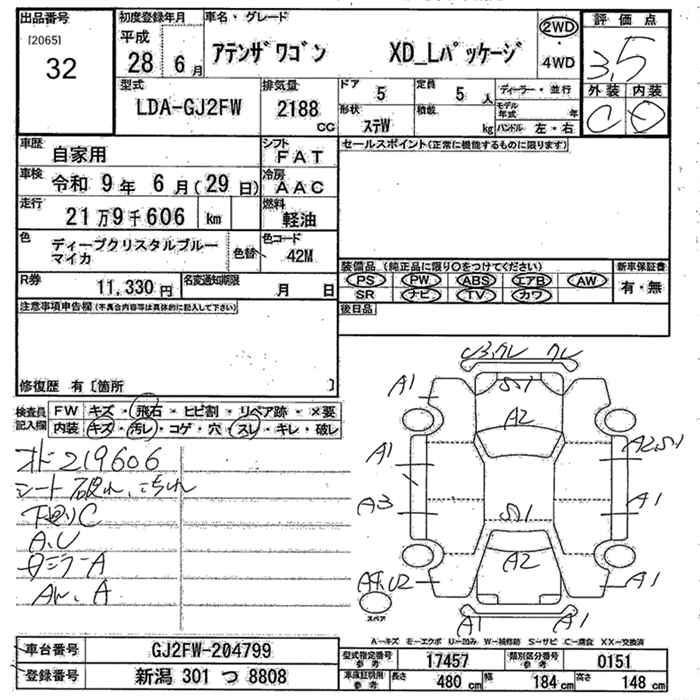 出品番号
[2065]
32
初度登録年月
平成
28 6月
車名・グレード
アテンザワゴン XD_Lパッケージ
2WD
・
4WD
評価点
3.5
外装 内装
C
型式
LDA-GJ2FW
排気量
2188
CC
ドア 5
定員 5 人
ディーラー・並行
形状 ステW
積載 kg
モデル年式 年
ハンドル 左・右
車歴 自家用
シフト FAT
セールスポイント(正常に機能するものに限ります)
車検 令和 9年 6月(29日)
冷房 AAC
走行 21万9千606 km
燃料 軽油
色 ディープクリスタルブルー
マイカ
色替
色コード 42M
R券 11,330円
名変通知期限 月 日
装備品(純正品に限り○をつけてください)
新車保証書
PS PW ABS エアB AW
有・無
SR ナビ TV カワ
後日品
注意事項申告欄(不具合内容等は具体的に記入して下さい)
修復歴 有〔箇所 〕
検査員
記入欄
FW キズ・飛石・ヒビ割・リペア跡・×要
内装 キズ・汚レ・コゲ・穴・スレ・キレ・破レ
オド219606
シート破れ、こすれ
下廻りC
A,U
Aw、A
U3,クレ クレ
A1 S1
A2
A1 A2,S1
A3 A1
S1
A2
A1
A1 A1
スペア
A-キズ E-エクボ U-凹み W-補修跡 S-サビ C-腐食 XX-交換済
車台番号 GJ2FW-204799
登録番号 新潟 301 つ 8808
型式指定番号
参考
17457
類別区分番号
参考
0151
車庫証明用
参考
長さ 480 cm
幅 184 cm
高さ 148 cm